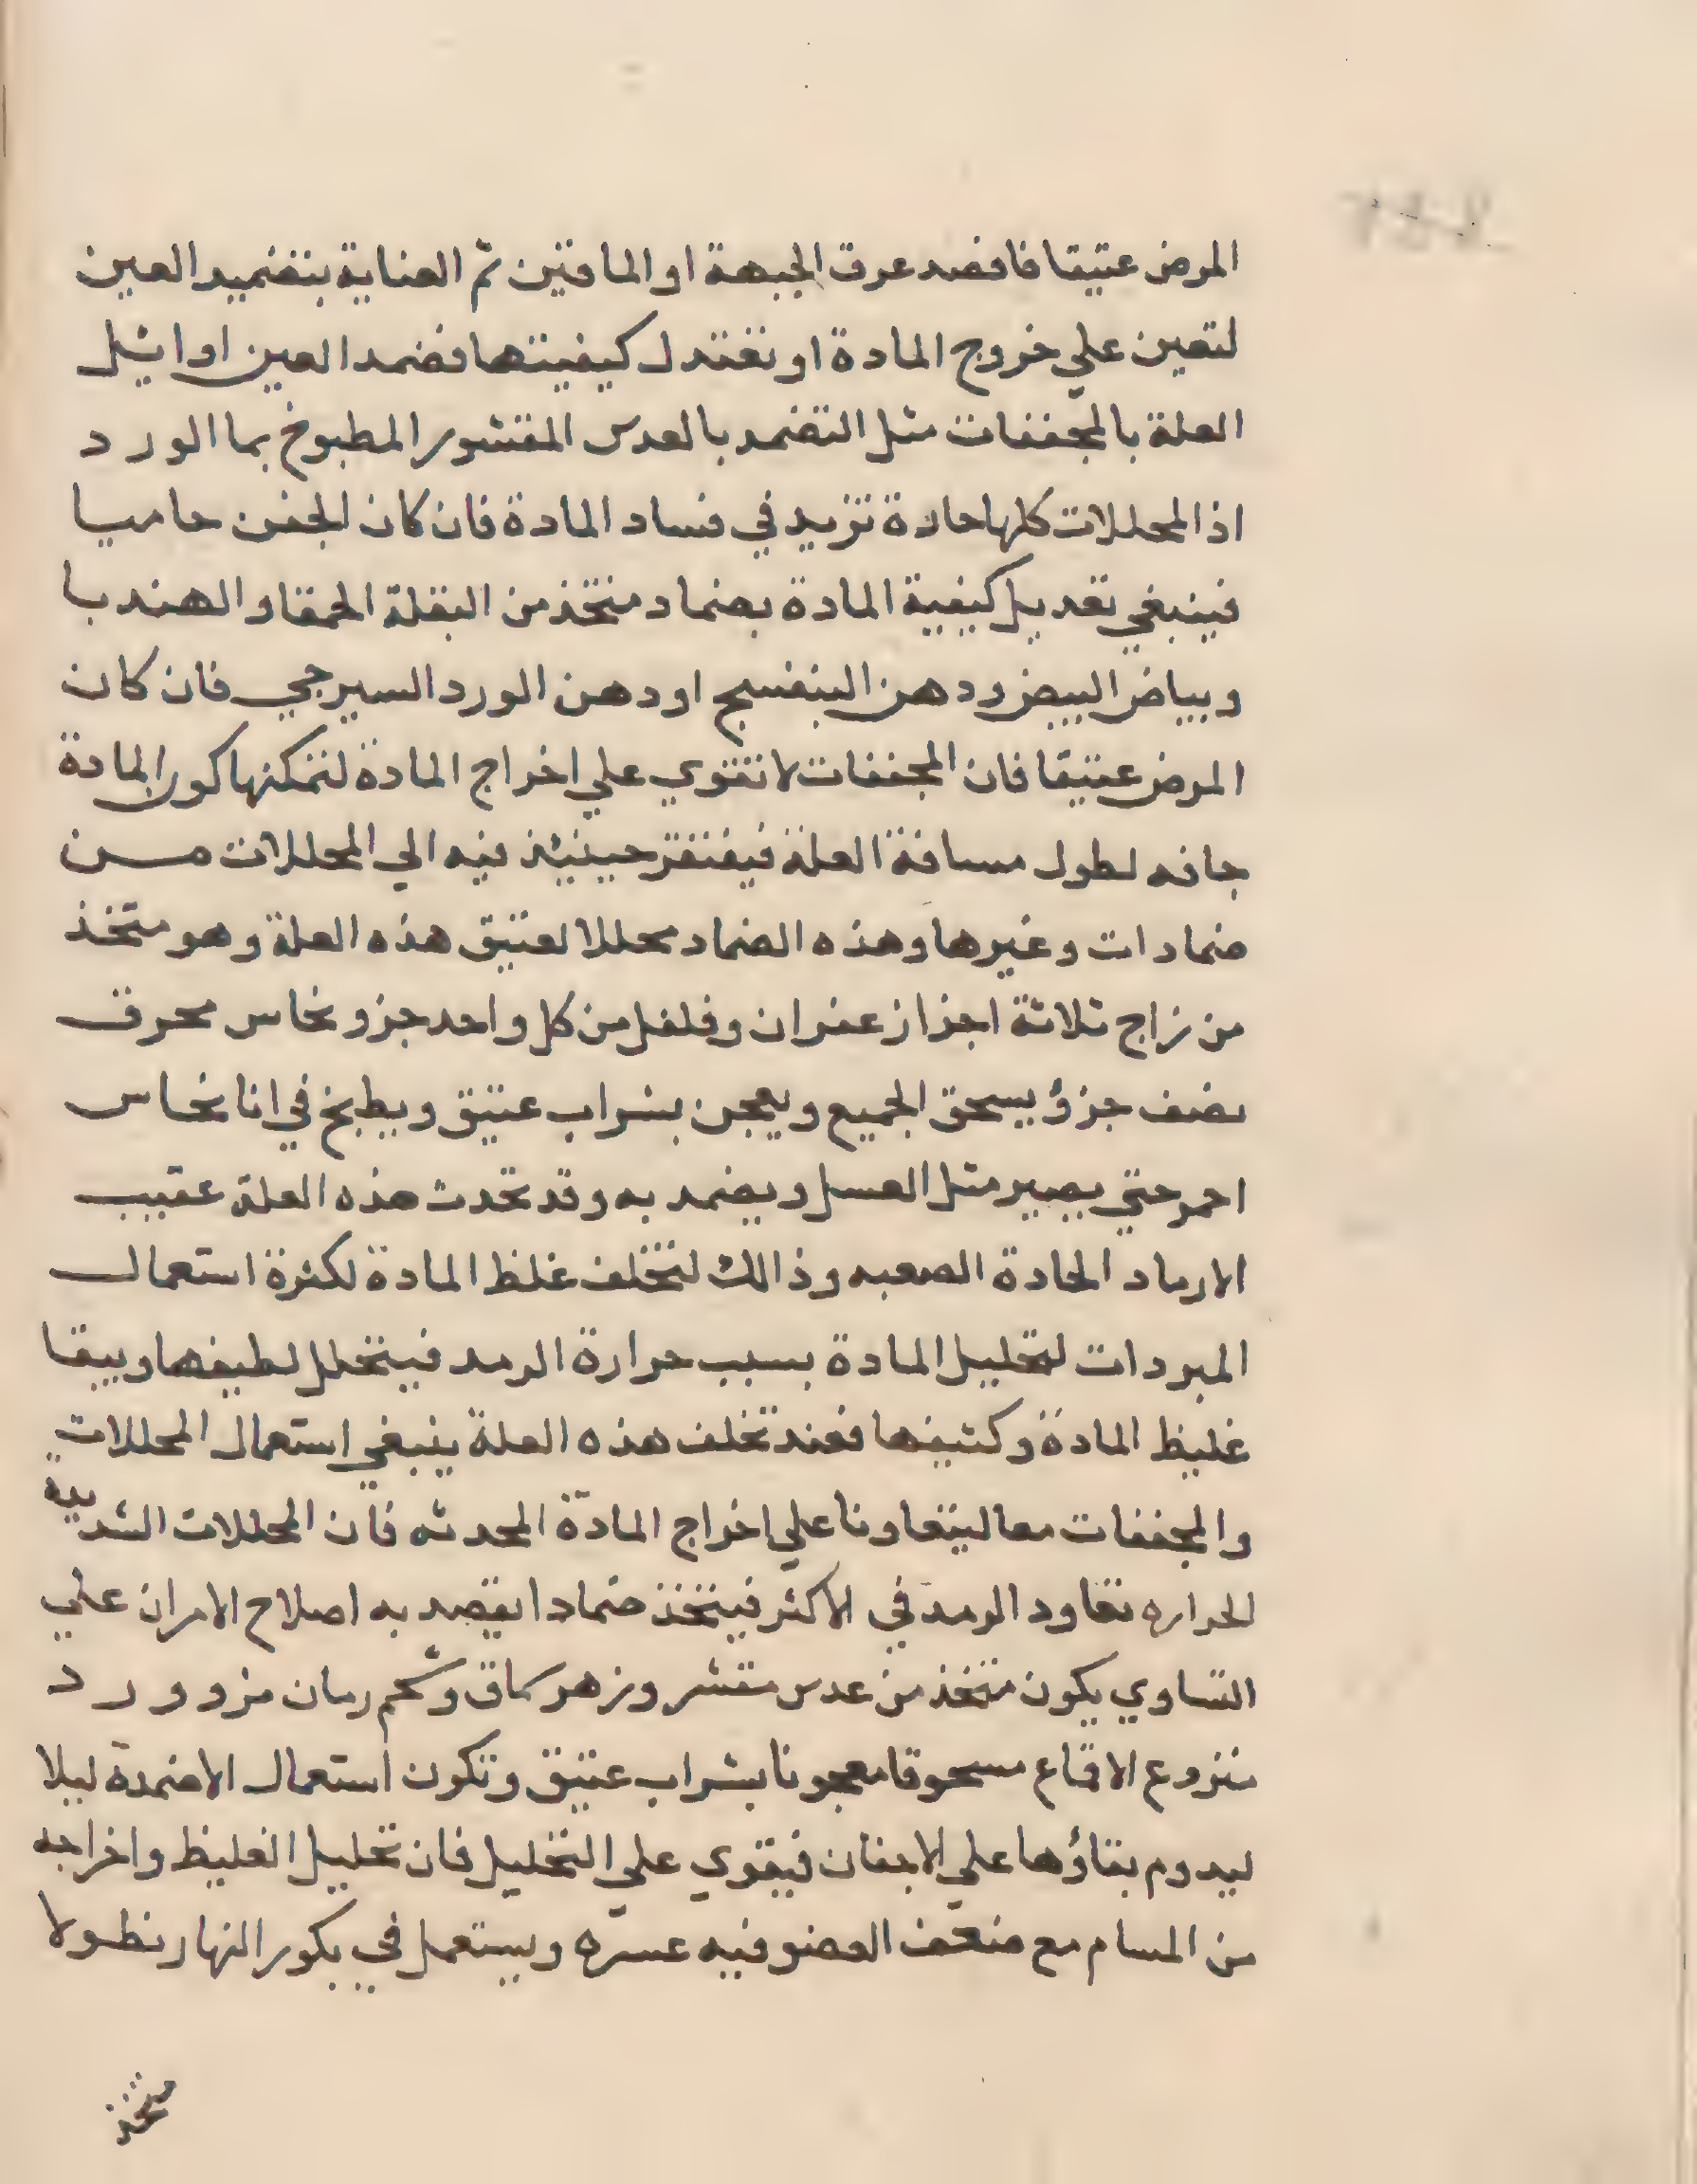 المرض عتيقا فافصد عرق الجبهة او الماقين ثم العناية بتضميد العين
لتعين علي خروج المادة او تعتدل كيفيتها فضمد العين اوايل
العلة بالمجففات مثل التضمد بالعدس المقشور المطبوخ بما الورد
اذ المحللات كلها حادة تزيد في فساد المادة فان كان الجفن حاميا
فينبغي تعديل كيفية المادة بضماد متخذ من البقلة الحمقا والهندبا
وبياض البيض ودهن البنفسج او دهن الورد السيرجي فان كان
المرض عتيقا فان المجففات لا تقوي علي اخراج المادة لتمكنها كون المادة
جافه لطول مسافة العلة فيفتقر حينيئذ فيه الي المحللات من
ضمادات وغيرها وهذه الضماد محللا لعتيق هذه العلة وهو متخذ
من زاج ثلاثة اجزا زعفران وفلفل من كل واحد جزو نحاس محرق
نصف جزؤ يسحق الجميع ويعجن بشراب عتيق ويطبخ في انا نحاس
احمر حتي يصير مثل العسل ويضمد به وقد تحدث هذه العلة عقيب
الارماد الحادة الصعبه وذالك لتخلف غلظ المادة لكثرة استعمال
المبردات لتحليل المادة بسبب حرارة الرمد فيتحلل لطيفها ويبقا
غليظ المادة وكثيفها فعند تخلف هذه العلة ينبغي استعمال المحللات
والمجففات معا ليتعاونا علي اخراج المادة المحدثه فان المحللات الشديدة
الحراره تعاود الرمد في الاكثر فيتخذ ضمادا يقصد به اصلاح الامران علي
التساوي يكون متخذ من عدس مقشر وزهر كماق وشحم رمان مز وورد
منزوع الاقماع مسحوقا معجونا بشراب عتيق وتكون استعمال الاضمدة ليلا
ليدوم بقاؤها علي الاجفان فيقوي علي التحليل فان تحليل الغليظ واخراجه
من المسام مع ضعف العضو فيه عسره ويستعمل في بكور النهار نطولا
متخذ